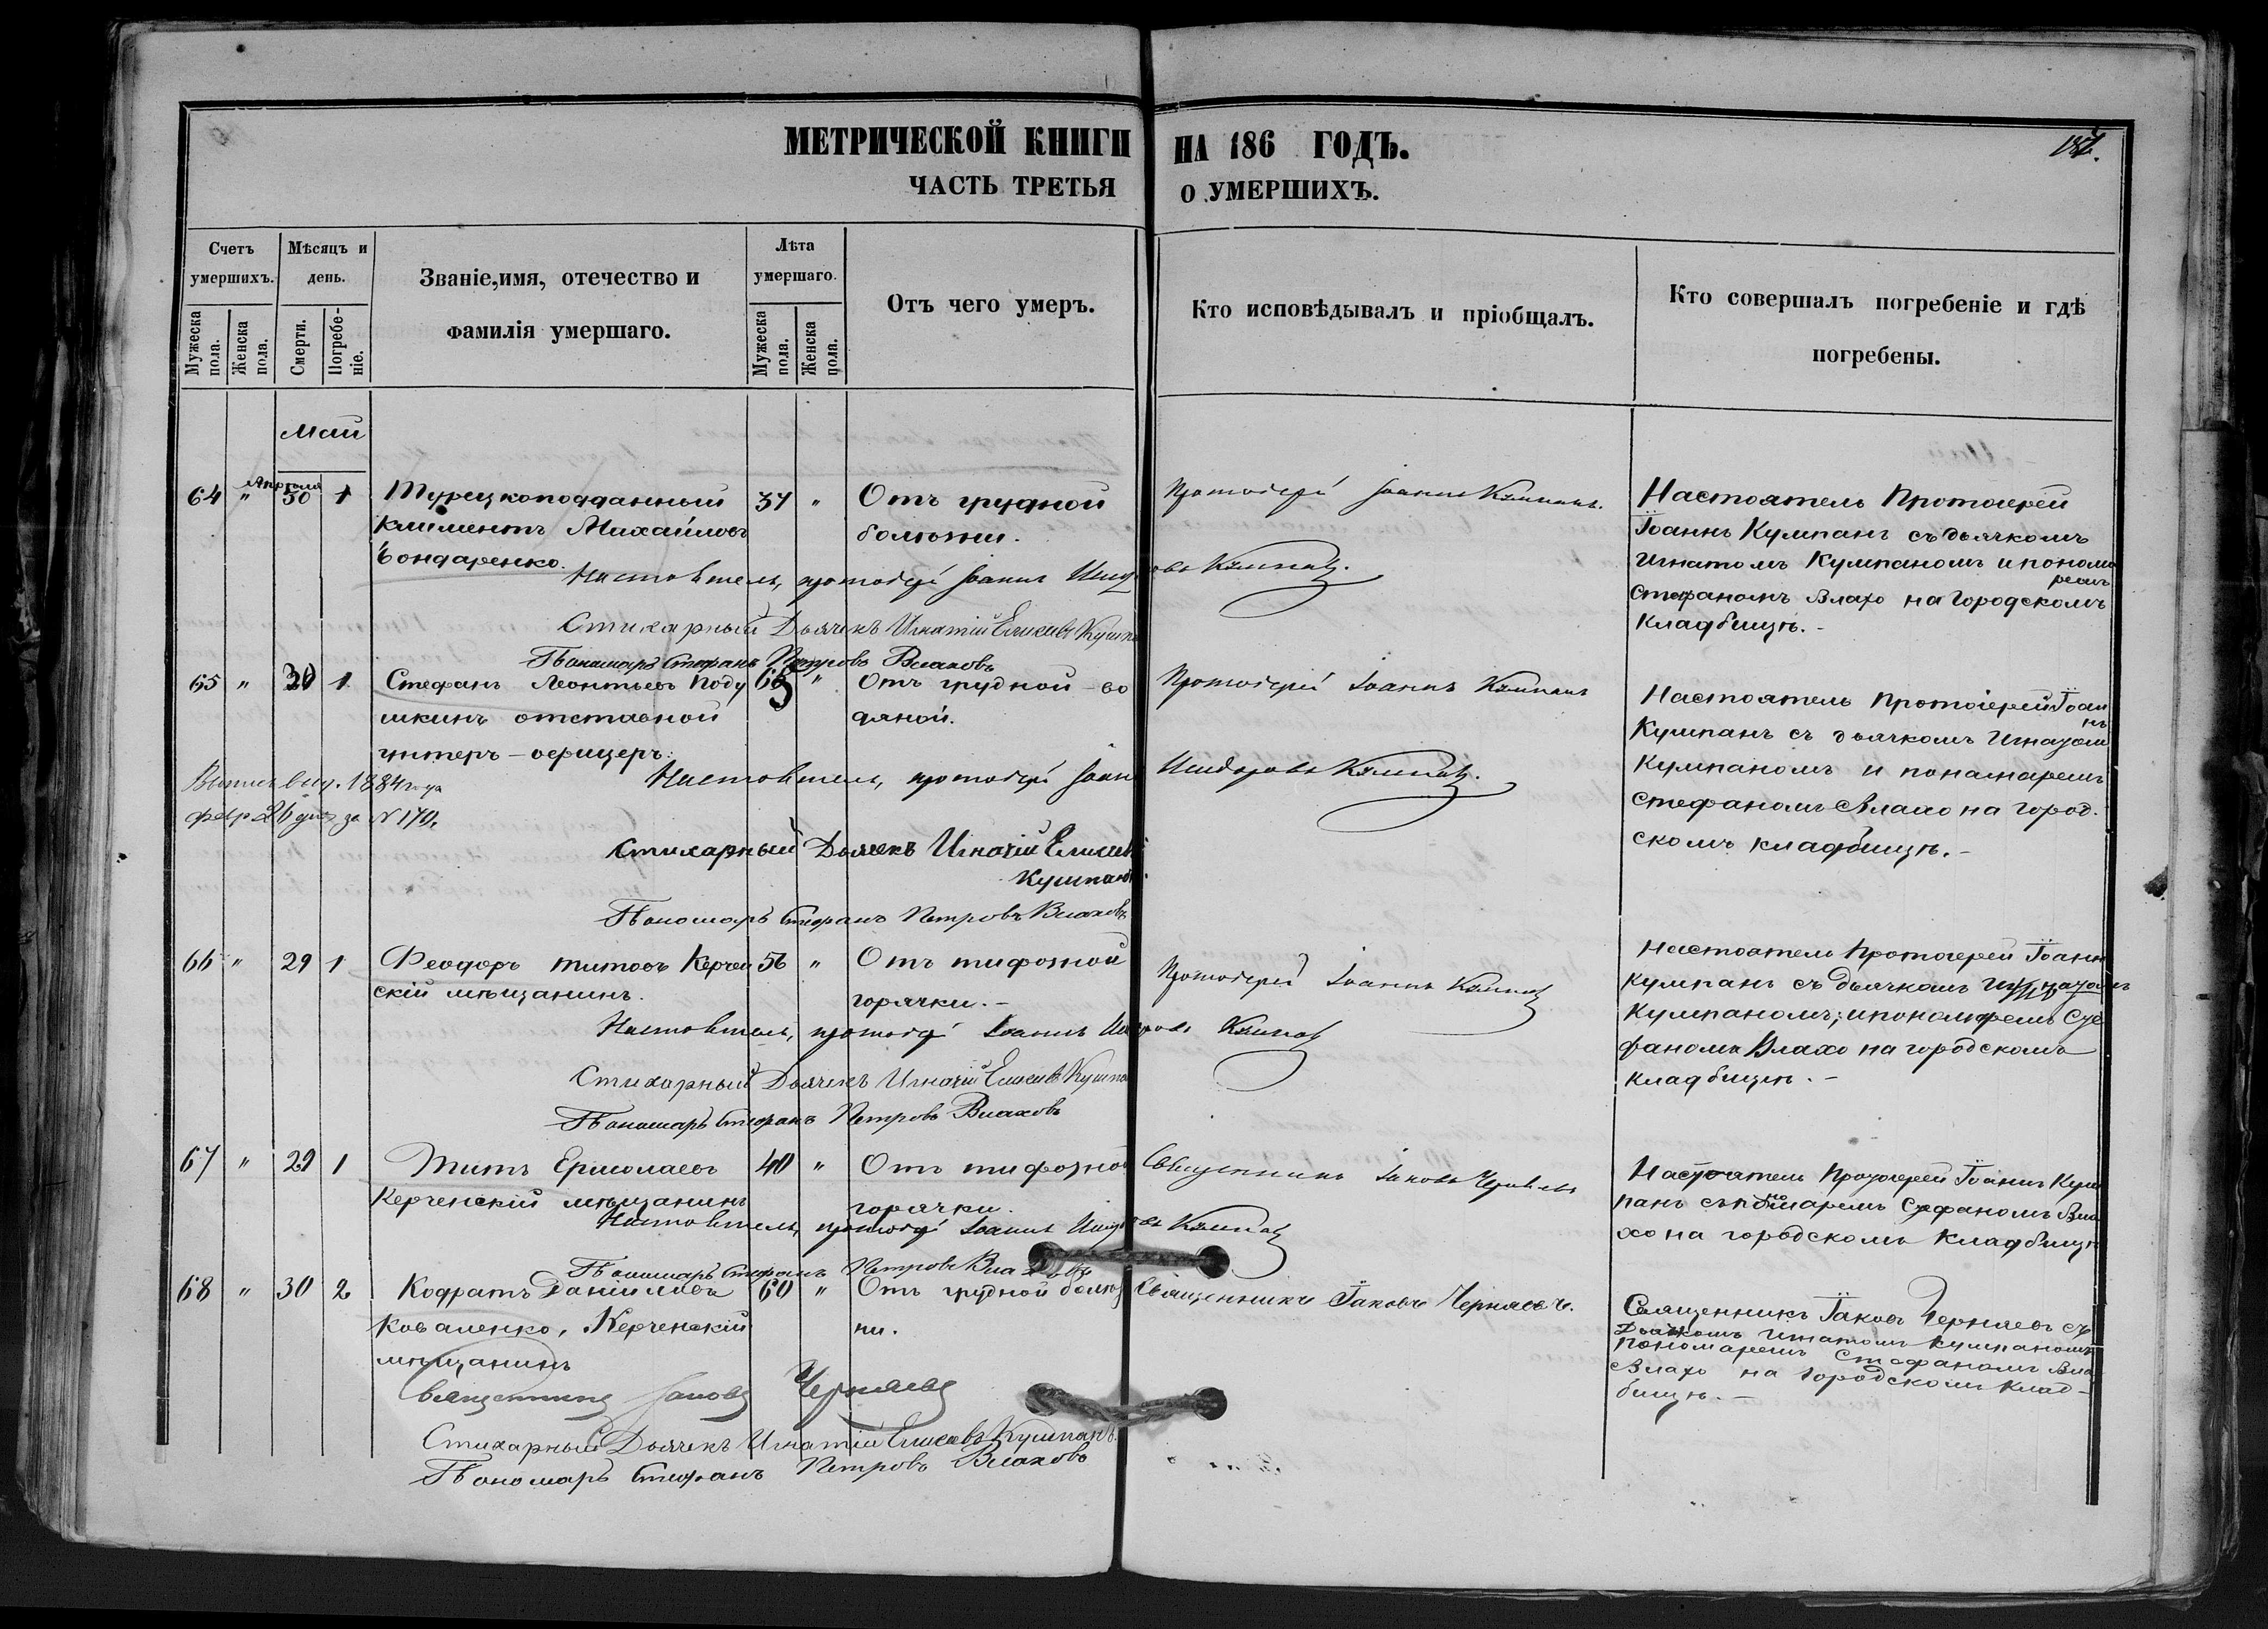 МЕТРИЧЕСКОЙ КНИГИ НА 186 ГОДЪ.
ЧАСТЬ ТРЕТЬЯ О УМЕРШИХЪ.
Счетъ умершихъ.
Мѣсяцъ и день.
Званіе, имя, отечество и фамилія умершаго.
Лѣта умершаго.
Отъ чего умеръ.
Кто исповѣдывалъ и пріобщалъ.
Кто совершалъ погребеніе и гдѣ погребены.
Мужеска пола.
Женска пола.
Смерти.
Погребеніе.
Мужеска пола.
Женска пола.
Май
Апреля
64 " 30 1 Турецкоподданный 37 " Отъ грудной
Климентъ Михайловъ болѣзни.
Бондаренко.
Протоіерей Іоаннъ Кумпанъ.
Настоятель Протоиерей
Іоаннъ Кумпанъ съ дьячкомъ
Игнатомъ Кумпаномъ и понома
ремъ
Стефаномъ Влахо на Городскомъ
Кладбищѣ.-
Настоятель, протоіерей Іоаннъ Исидоровъ Кумпанъ.
Стихарный Дьячекъ Игнатій Елисеевъ Кумпа
Пономарь Стефанъ Петровъ Влаховъ
65 " 30 1 Стефанъ Леонтьевъ Поду 65 " Отъ грудной - во
шкинъ отставной дяной.
унтеръ-офицеръ.
Протоіерей Іоаннъ Кумпанъ
Настоятель Протоіерей Іоан
нъ
Кумпанъ съ дьячкомъ Игнатом
Кумпаномъ и понамаремъ
Стефаномъ Влахо на город.
скомъ кладбищѣ.-
Выпись выд. 1884 года
Февр 26 дня за N 170.
Настоятель, протоіерей Іоаннъ Исидоровъ Кумпанъ.
Стихарный Дьячекъ Игнатій Елисеевъ
Кумпанъ.
Пономарь Стефанъ Петровъ Влаховъ
66 " 29 1 Феодоръ Титовъ Керчен 56 " Отъ тифозной
скій мѣщанинъ. горячки.-
Протоіерей Іоаннъ Кумпанъ
Настоятель Протоиерей Іоанн
Кумпанъ съ дьячкомъ Игнатомъ
Кумпаномъ; и пономаремъ Сте
фаномъ Влахо на городскомъ
кладбищѣ.-
Настоятель, протоіерей Іоаннъ Исидоровъ Кумпанъ
Стихарный Дьячекъ Игнатій Елисеевъ Кумпа
Пономарь Стефанъ Петровъ Влаховъ
67 " 29 1 Титъ Ермолаевъ 40 " Отъ тифозной
Керченскій мѣщанинъ горячки.
Священникъ Іаковъ Черняевъ
Настоятель Протоиерей Іоаннъ Кум
панъ съ пономаремъ Стефаномъ Вла
хо на городскомъ Кладбищѣ
Настоятель, протоіерей Іоаннъ Исидоровъ Кумпанъ
Пономарь Стефанъ Петровъ Влаховъ
68 " 30 2 Кодратъ Даніиловъ 60 " Отъ грудной болѣз
Коваленко, Керченскій ни.
мѣщанинъ
Священникъ Іаковъ Черняевъ.
Священникъ Іаковъ Черняевъ съ
Дьячкомъ Игнатомъ Кумпаномъ
пономаремъ Стефаномъ Вла
Влахо на Городскомъ Клад-
бищѣ.-
Священникъ Іаковъ Черняевъ
Стихарный Дьячекъ Игнатій Елисеевъ Кумпанъ.
Пономарь Стефанъ Петровъ Влаховъ